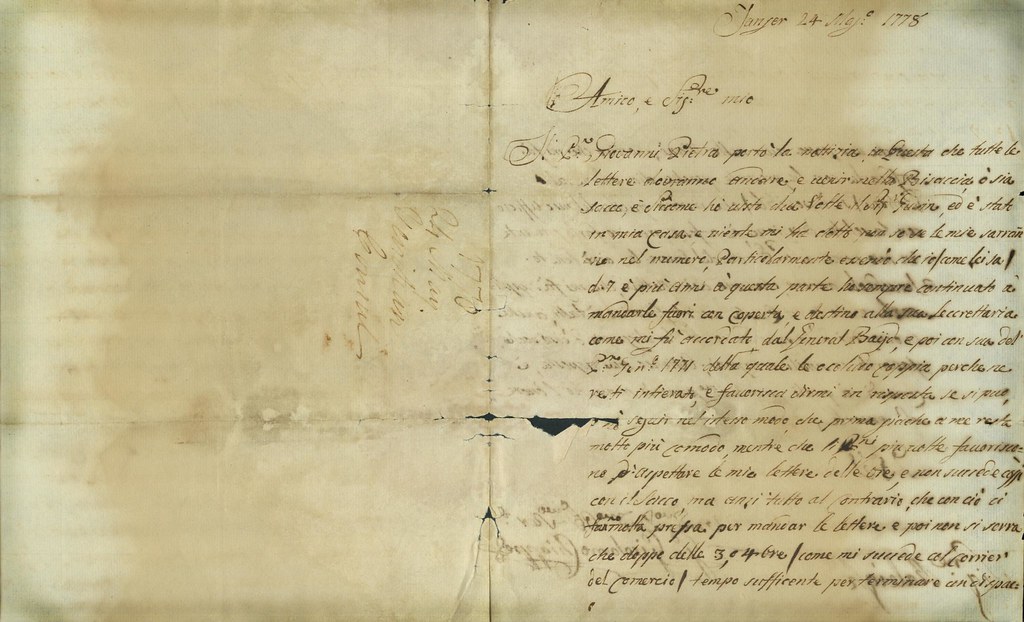 Tanger 24 Mag.º 1778
Amico, e Sig.re mio
Il Giovanni Pietro portò la notizia, in questa che tutte le
lettere dovranno andare, e venir nella Bisaccia, ò sia
sacco, è siccome ho visto ed è stato
in mia Casa e niente mi ha detto non so se le mie sarran
no nel numero, Particolarmente essendo che io come lei sa /
d. 7 è più anni à questa parte ho sempre continuato à
mandarle fuori con coperta, e destino alla sua Seccrettaria
come mi fù accordato dal General e poi con sua del
1771 della quale le occludo coppia perche ne
resti intierato, è favorisca dirmi in risposta se si può,
ò nò seguir nel istesso modo, che prima perche a me resta
molto più comodo, mentre che li più volte favorisco-
no di aspettare le mie lettere delle ore, e non succede così
con il Sacco, ma anzi tutto al contrario, che con ciò ci
fà molta pressa per mandar le lettere e poi non si serra
che doppo delle 3, o 4 ore / come mi succede al Corrier
del Comercio / tempo sufficente per terminare un dispac-
1778
Consul